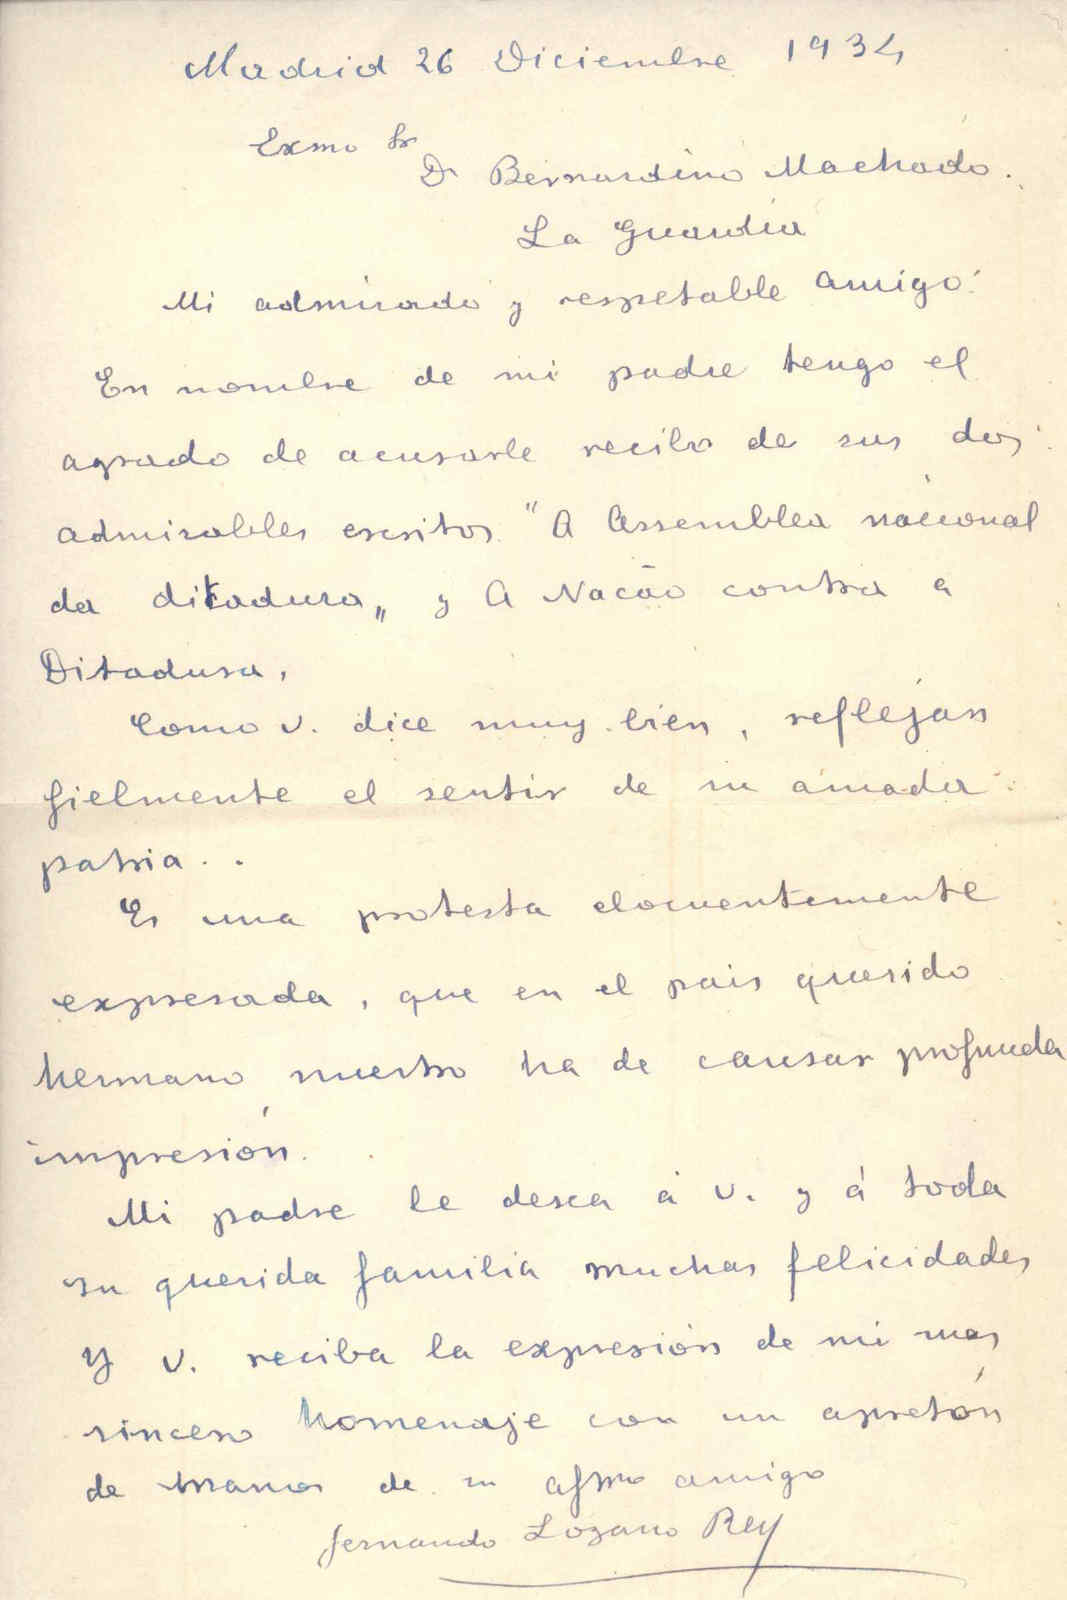 Madrid 26 Diciembre 1934
Exmo Sr
Dn Bernardino Machado.
La Guardia
Mi admirado y respetable amigo:
En nombre de mi padre tengo el
agrado de acusarle recibo de sus dos
admirables escritos "A Assemblea nacional
da ditadura" y A Nacão contra a
Ditadura,
Como v. dice muy bien, reflejan
fielmente el sentir de su amada
patria..
Es una protesta elocuentemente
expresada, que en el pais querido
hermano nuestro ha de causar profunda
impresión.
Mi padre le desea á v. y á toda
su querida familia muchas felicidades
y v. reciba la expresión de mi mas
sincero homenaje con un apretón
de manos de su afmo amigo
Fernando Lozano Rey